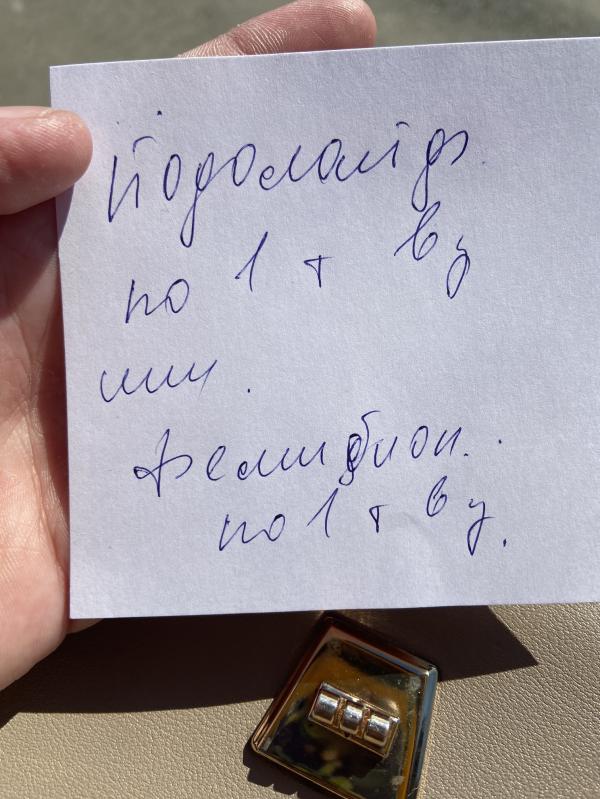 Йодомарид
по 1 т в у
или
Фемибион.
по 1 т в у.